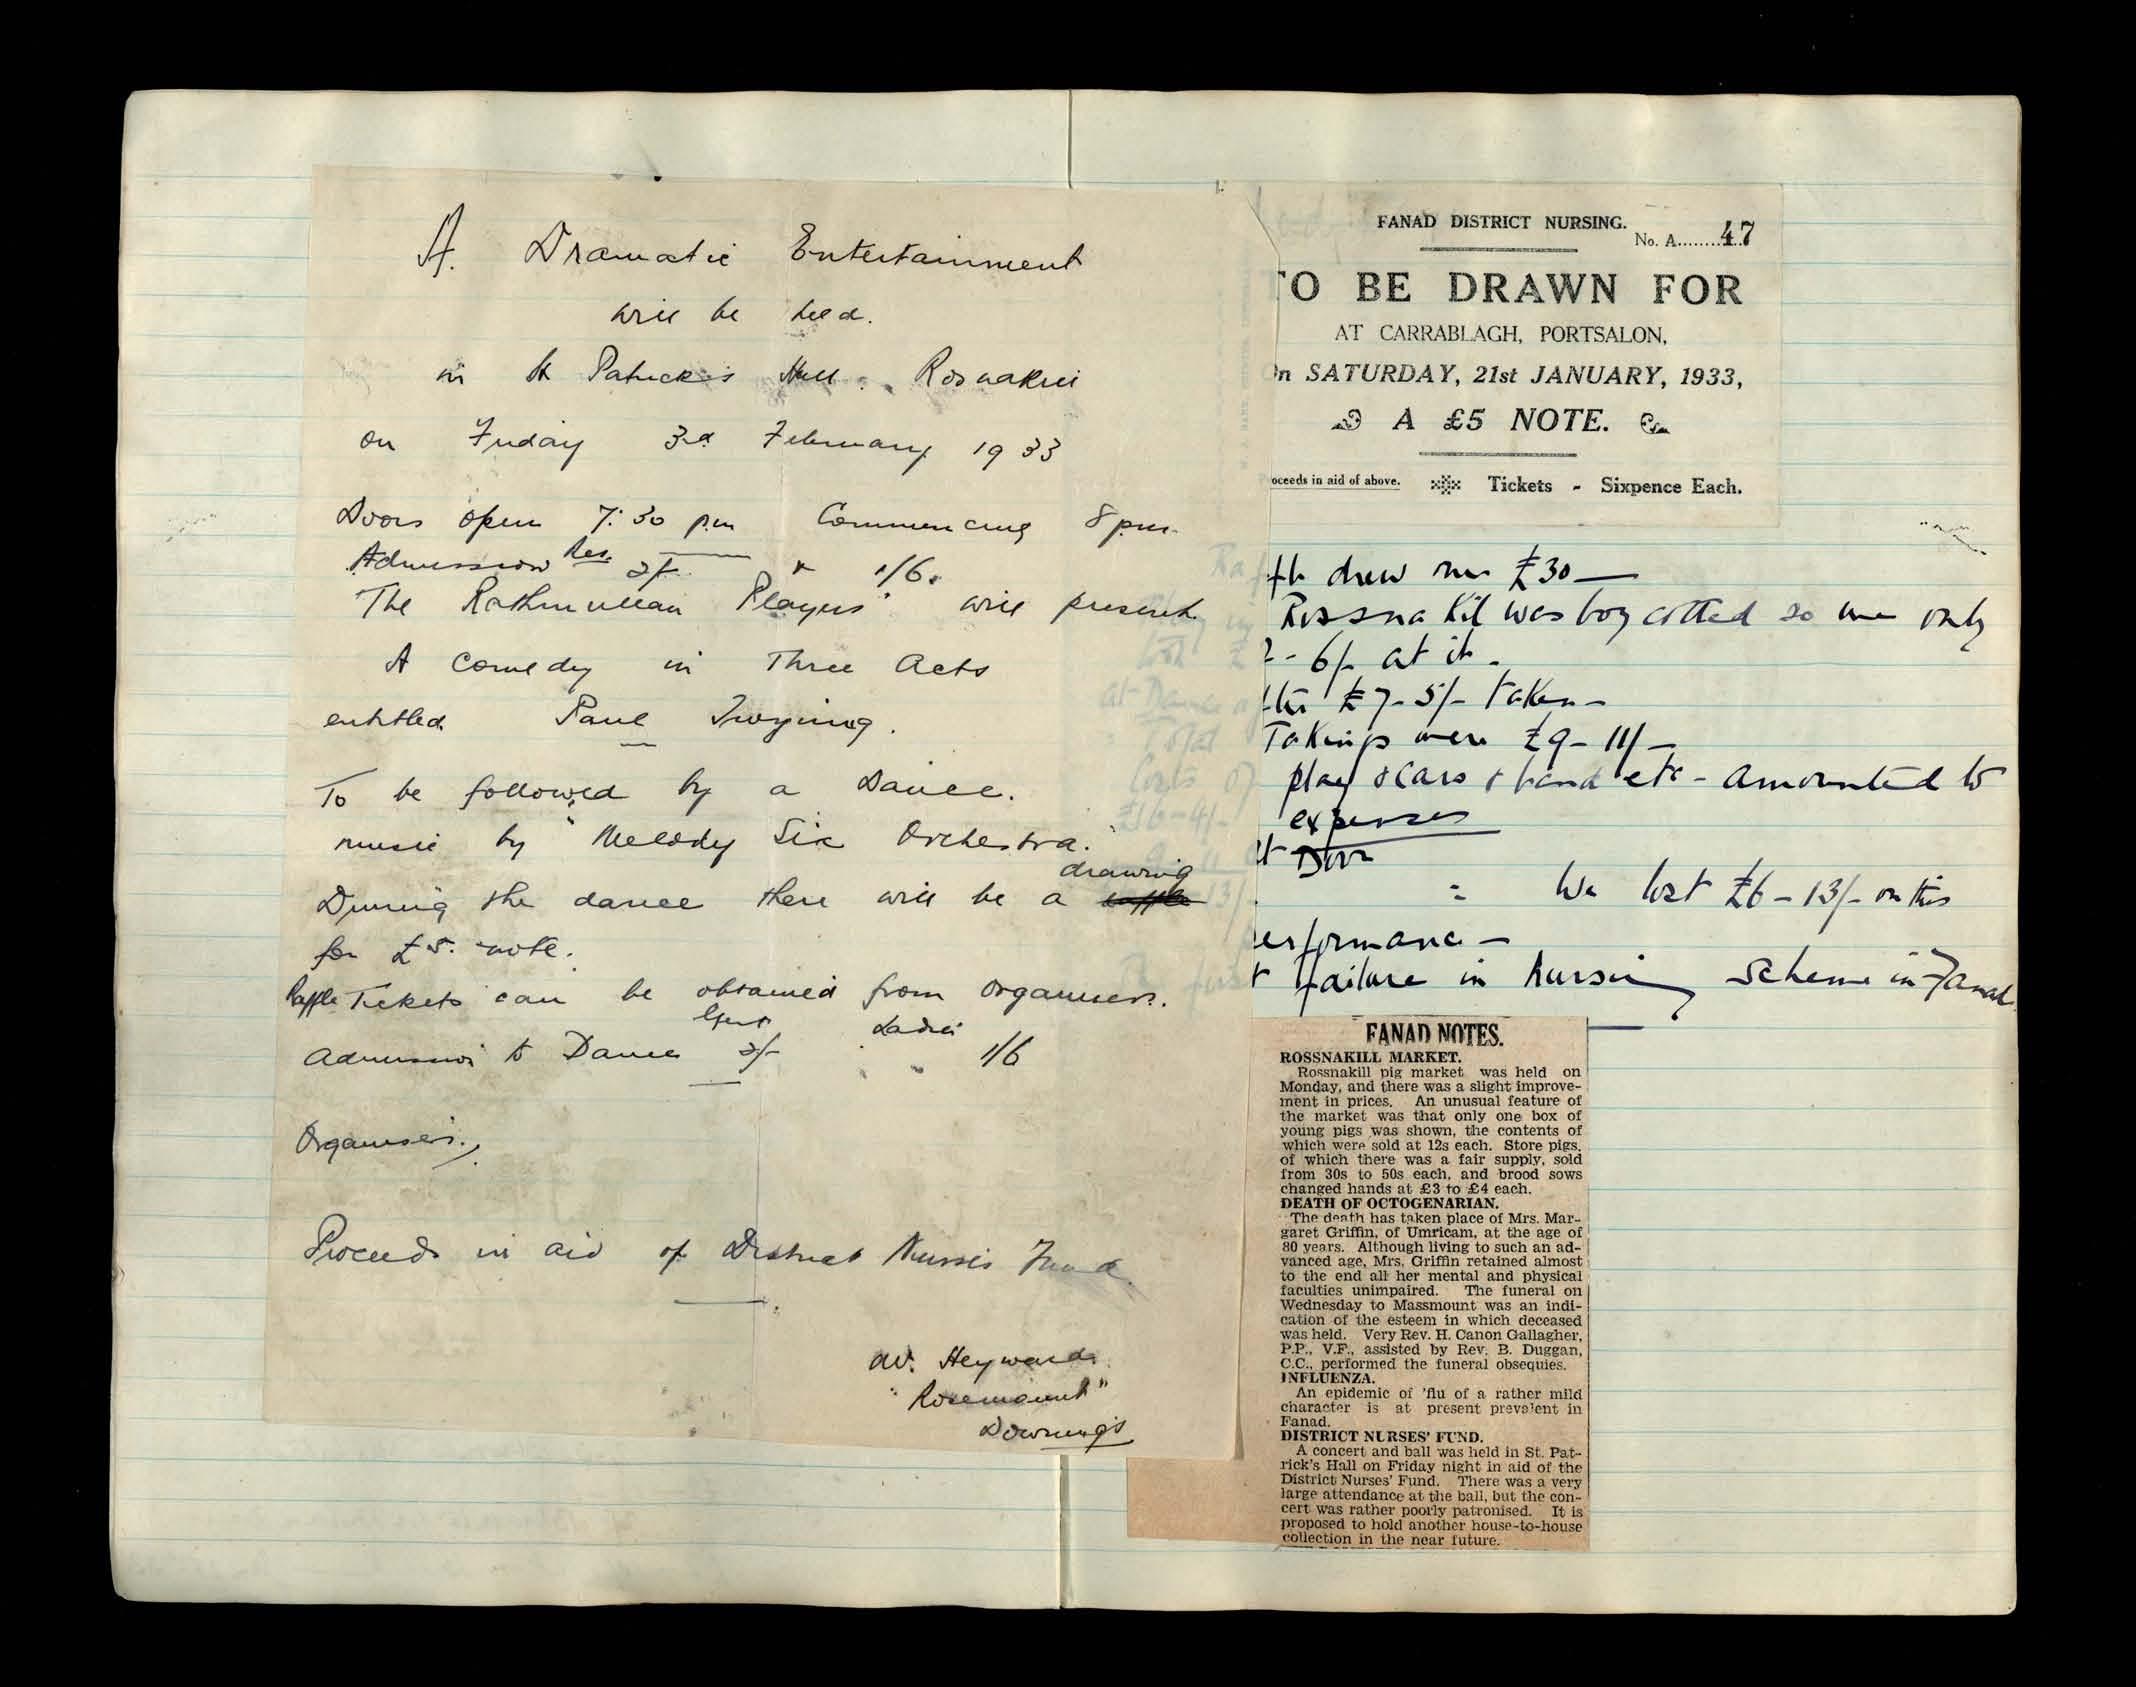 A Dramatic Entertainment
will be held.
in St Patrick's Hall. Rosnakill
on Friday 3rd February 1933
Doors open 7:30 p.m Commencing 8 pm.
Admission Res. 2/- " 1/6.
The Rathmullan Players" will present.
A comedy in Three Acts
entitled Paul Twyning.
To be followed by a Dance.
music by "Melody Six Orchestra."
drawing
During the dance there will be a raffle
for £5. note.
Raffle Tickets can be obtained from organisers.
Gent Ladies
Admission to Dance 2/- " " 1/6
Organisers.
Proceeds in aid of District Nurses Fund.
W. Heyward.
"Rosemount"
Downings
FANAD DISTRICT NURSING.
No. A........47
TO BE DRAWN FOR
AT CARRABLAGH, PORTSALON,
On SATURDAY, 21st JANUARY, 1933,
A £5 NOTE.
oceeds in aid of above. Tickets - Sixpence Each.
Raffle drew £30 —
Rossnakil was boycotted so we only
2-6/- at it -
£7-5/- taken -
Takings were £9-11/-
play & cars & band etc - amounted to
£16-4/- expenses
at Door
= We lost £6-13/- on this
performance -
The first failure in Nursing Scheme in Fanad
FANAD NOTES.
ROSSNAKILL MARKET.
Rossnakill pig market was held on
Monday, and there was a slight improve-
ment in prices. An unusual feature of
the market was that only one box of
young pigs was shown, the contents of
which were sold at 12s each. Store pigs,
of which there was a fair supply, sold
from 30s to 50s each, and brood sows
changed hands at £3 to £4 each.
DEATH OF OCTOGENARIAN.
The death has taken place of Mrs. Mar-
garet Griffin, of Umricam, at the age of
80 years. Although living to such an ad-
vanced age, Mrs. Griffin retained almost
to the end all her mental and physical
faculties unimpaired. The funeral on
Wednesday to Massmount was an indi-
cation of the esteem in which deceased
was held. Very Rev. H. Canon Gallagher,
P.P., V.F., assisted by Rev. B. Duggan,
C.C., performed the funeral obsequies.
INFLUENZA.
An epidemic of 'flu of a rather mild
character is at present prevalent in
Fanad.
DISTRICT NURSES' FUND.
A concert and ball was held in St. Pat-
rick's Hall on Friday night in aid of the
District Nurses' Fund. There was a very
large attendance at the ball, but the con-
cert was rather poorly patronised. It is
proposed to hold another house-to-house
collection in the near future.